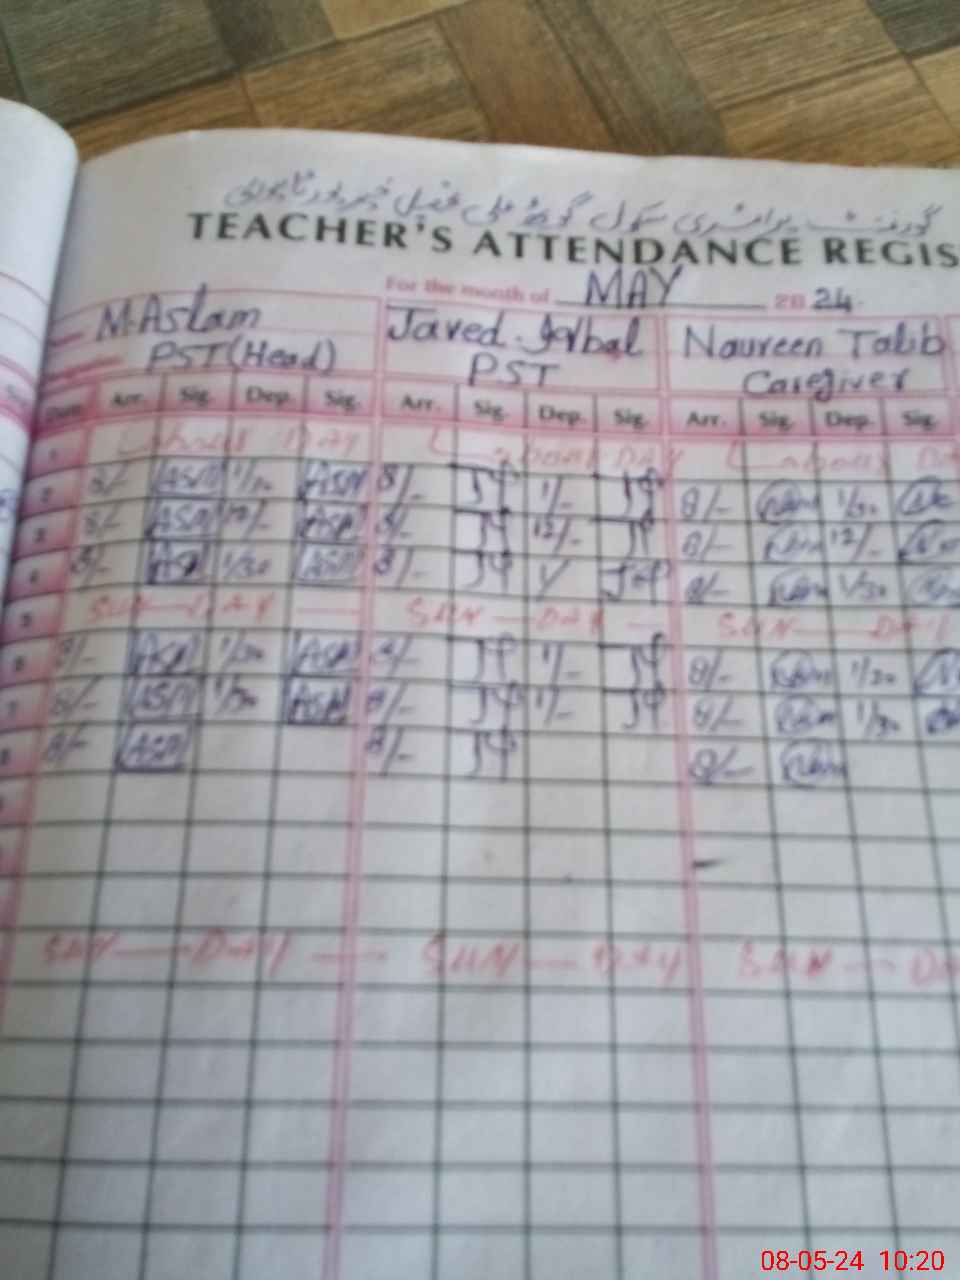 گورنمنٹ پرائمری سکول گوٹھ علی فضل
TEACHER'S ATTENDANCE REGIS
For the month of MAY 2024.
M.Aslam Javed Iqbal Naureen Talib
PST (Head) PST Caregiver
Date Arr. Sig. Dep. Sig. Arr. Sig. Dep. Sig. Arr. Sig. Dep. Sig.
1 Labour DAY Labour DAY Labour DA
2 8/- ASM 1/30 ASM 8/- 1/- 8/- 1/30
3 8/- ASM 12/- ASM 8/- 12/- 8/- 12/-
4 8/- ASM 1/30 ASM 8/- 8/- 1/30
5 SUN—DAY— SUN—DAY— SUN—DAY
6 8/- ASM 1/30 ASM 8/- 1/- 8/- 1/30
7 8/- ASM 1/30 ASM 8/- 1/- 8/- 1/30
8 8/- ASM 8/- 8/-
SUN—DAY— SUN—DAY SUN—DA
08-05-24 10:20